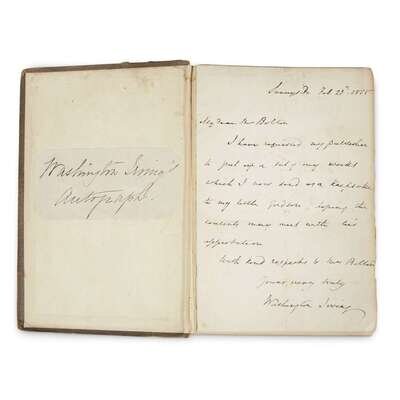 Washington Irving's
Autograph.
Sunnyside Feb 23d. 1855
My dear Mr Bolton
I have requested my publisher
to put up a set of my works
which I now send as a keepsake
to my little godson; hoping the
contents may meet with his
approbation
With kind respects to Mrs Bolton
Yours very truly
Washington Irving